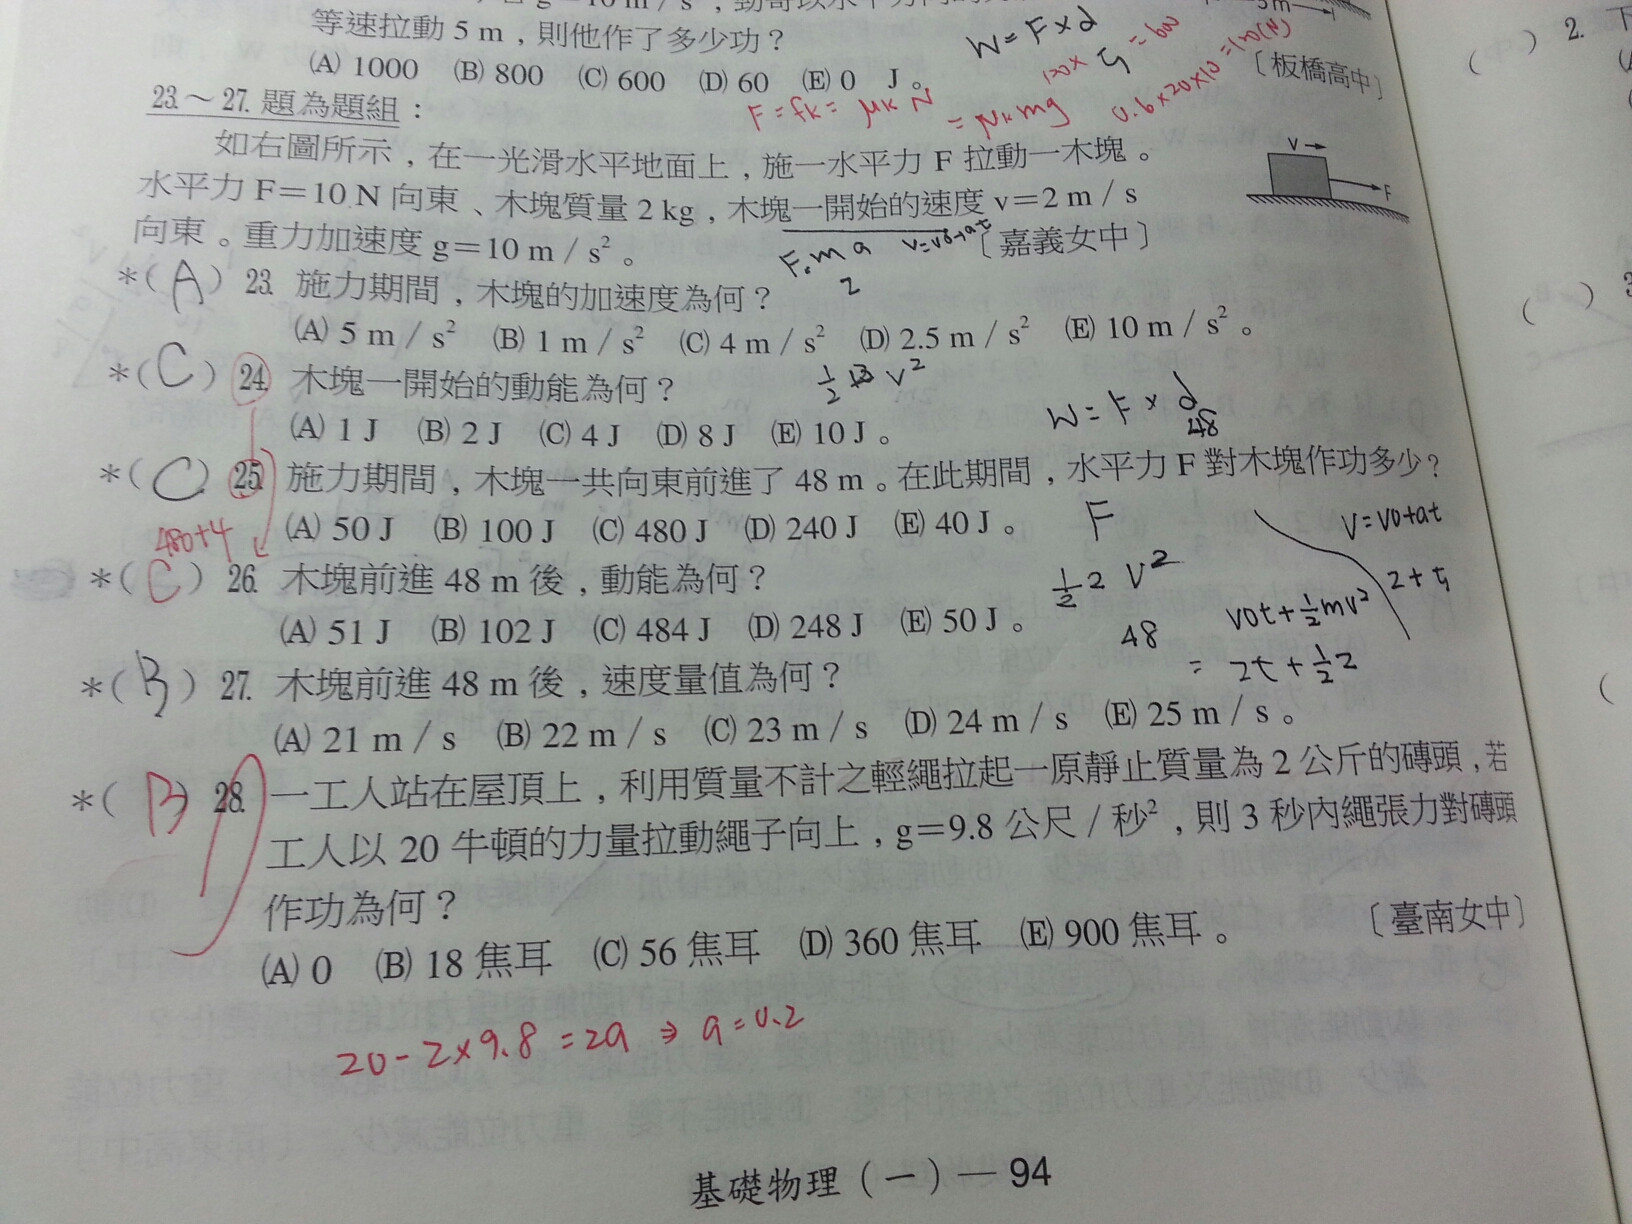 等速拉動 5 m，則他作了多少功？
W = F × d
(A) 1000 (B) 800 (C) 600 (D) 60 (E) 0 J。
〔板橋高中〕
120 × 5 = 600
F = fk = μk N
= μk mg
0.6×20×10 = 120(N)
23.～27. 題為題組：
如右圖所示，在一光滑水平地面上，施一水平力 F 拉動一木塊。
水平力 F＝10 N 向東、木塊質量 2 kg，木塊一開始的速度 v＝2 m / s
向東。重力加速度 g＝10 m / s²。
〔嘉義女中〕
v
F
F = m a
2
v=v0+at
*( A ) 23. 施力期間，木塊的加速度為何？
(A) 5 m / s² (B) 1 m / s² (C) 4 m / s² (D) 2.5 m / s² (E) 10 m / s²。
*( C ) 24. 木塊一開始的動能為何？
(A) 1 J (B) 2 J (C) 4 J (D) 8 J (E) 10 J。
W = F × d
48
*( C ) 25. 施力期間，木塊一共向東前進了 48 m。在此期間，水平力 F 對木塊作功多少？
(A) 50 J (B) 100 J (C) 480 J (D) 240 J (E) 40 J。
480+4
F
V = V0+at
*( C ) 26. 木塊前進 48 m 後，動能為何？
½ 2 V²
(A) 51 J (B) 102 J (C) 484 J (D) 248 J (E) 50 J。
48
V0t + ½mv²
= 2t + ½2
*( B ) 27. 木塊前進 48 m 後，速度量值為何？
(A) 21 m / s (B) 22 m / s (C) 23 m / s (D) 24 m / s (E) 25 m / s。
*( B ) 28. 一工人站在屋頂上，利用質量不計之輕繩拉起一原靜止質量為 2 公斤的磚頭，若
工人以 20 牛頓的力量拉動繩子向上，g＝9.8 公尺 / 秒²，則 3 秒內繩張力對磚頭
作功為何？
〔臺南女中〕
(A) 0 (B) 18 焦耳 (C) 56 焦耳 (D) 360 焦耳 (E) 900 焦耳。
20 - 2×9.8 = 2a ⇒ a = 0.2
基礎物理（一）— 94
( ) 2. 下
( ) 3